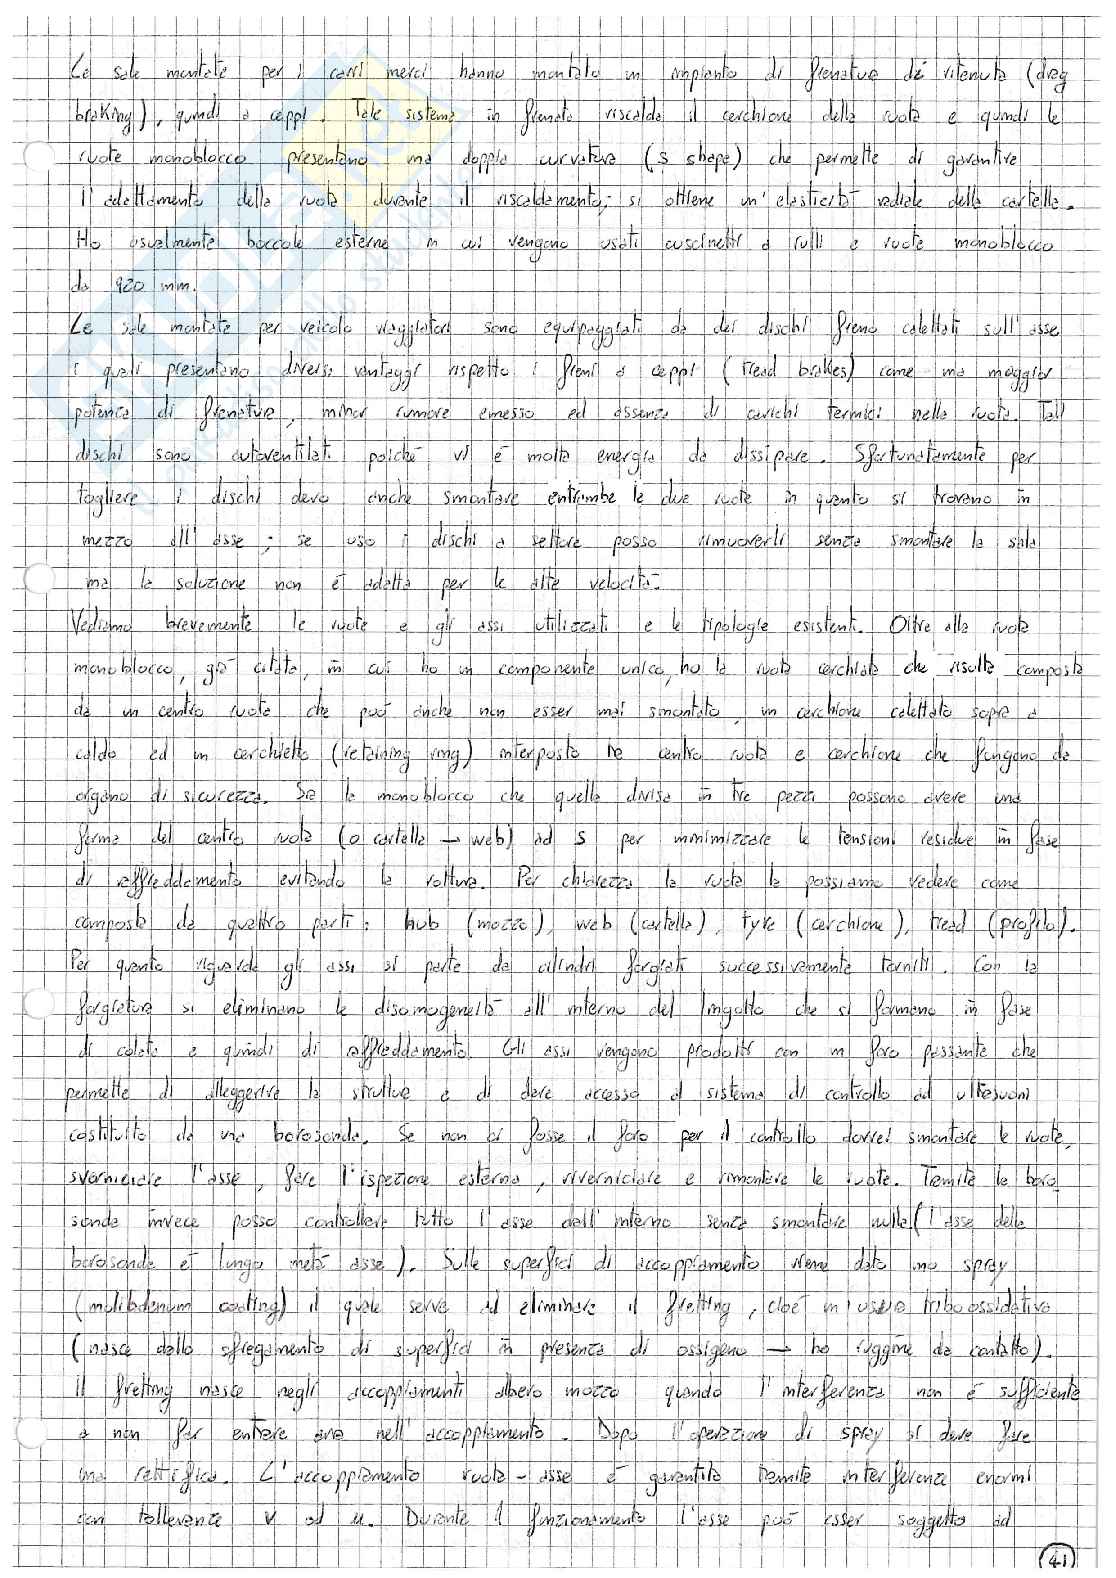 Le sale montate per i carri merci hanno montato un impianto di frenatura di ritenuta (drag
braking), quindi a ceppi. Tale sistema in frenata riscalda il cerchione della ruota e quindi le
ruote monoblocco presentano una doppia curvatura (s shape) che permette di garantire
l'adattamento della ruota durante il riscaldamento; si ottiene un'elasticità radiale della cartella.
Ho usualmente boccole esterne in cui vengono usati cuscinetti a rulli e ruote monoblocco
da 920 mm.
Le sale montate per veicolo viaggiatori sono equipaggiati da dei dischi freno calettati sull'asse
i quali presentano diversi vantaggi rispetto i freni a ceppi (tread brakes) come una maggior
potenza di frenatura, minor rumore emesso ed assenza di carichi termici nella ruota. Tali
dischi sono autoventilati poiché vi è molta energia da dissipare. Sfortunatamente per
togliere i dischi devo anche smontare entrambe le due ruote in quanto si trovano in
mezzo all'asse; se uso i dischi a settore posso rimuoverli senza smontare la sala
ma la soluzione non è adatta per le alte velocità.
Vediamo brevemente le ruote e gli assi utilizzati e le tipologie esistenti. Oltre alla ruota
monoblocco, già citata, in cui ho un componente unico, ho la ruota cerchiata che risulta composta
da un centro ruota che può anche non esser mai smontato, un cerchione calettato sopra a
caldo ed un cerchietto (retaining ring) interposto tra centro ruota e cerchione che fungono da
organo di sicurezza. Sia la monoblocco che quella divisa in tre pezzi possono avere una
forma del centro ruota (o cartella → web) ad S per minimizzare le tensioni residue in fase
di raffreddamento evitando la rottura. Per chiarezza la ruota la possiamo vedere come
composta da quattro parti: hub (mozzo), web (cartella), tyre (cerchione), tread (profilo).
Per quanto riguarda gli assi si parte da cilindri forgiati successivamente torniti. Con la
forgiatura si eliminano le disomogeneità all'interno del lingotto che si formano in fase
di colata e quindi di raffreddamento. Gli assi vengono prodotti con un foro passante che
permette di alleggerire la struttura e di dare accesso al sistema di controllo ad ultrasuoni
costituito da una borosonda. Se non ci fosse il foro per il controllo dovrei smontare le ruote,
sverniciare l'asse, fare l'ispezione esterna, riverniciare e rimontare le ruote. Tramite la boro
sonda invece posso controllare tutto l'asse dall'interno senza smontare nulla (l'asse della
borosonda è lungo metà asse). Sulle superfici di accoppiamento viene dato uno spray
(molibdenum coating) il quale serve ad eliminare il fretting, cioè un'usura triboossidativa
(nasce dallo sfregamento di superfici in presenza di ossigeno → ho ruggine da contatto).
Il fretting nasce negli accoppiamenti albero mozzo quando l'interferenza non è sufficiente
a non far entrare aria nell'accoppiamento. Dopo l'operazione di spray si deve fare
una rettifica. L'accoppiamento ruota-asse è garantito tramite interferenze enormi
con tolleranze v ed u. Durante il funzionamento l'asse può esser soggetto ad
41